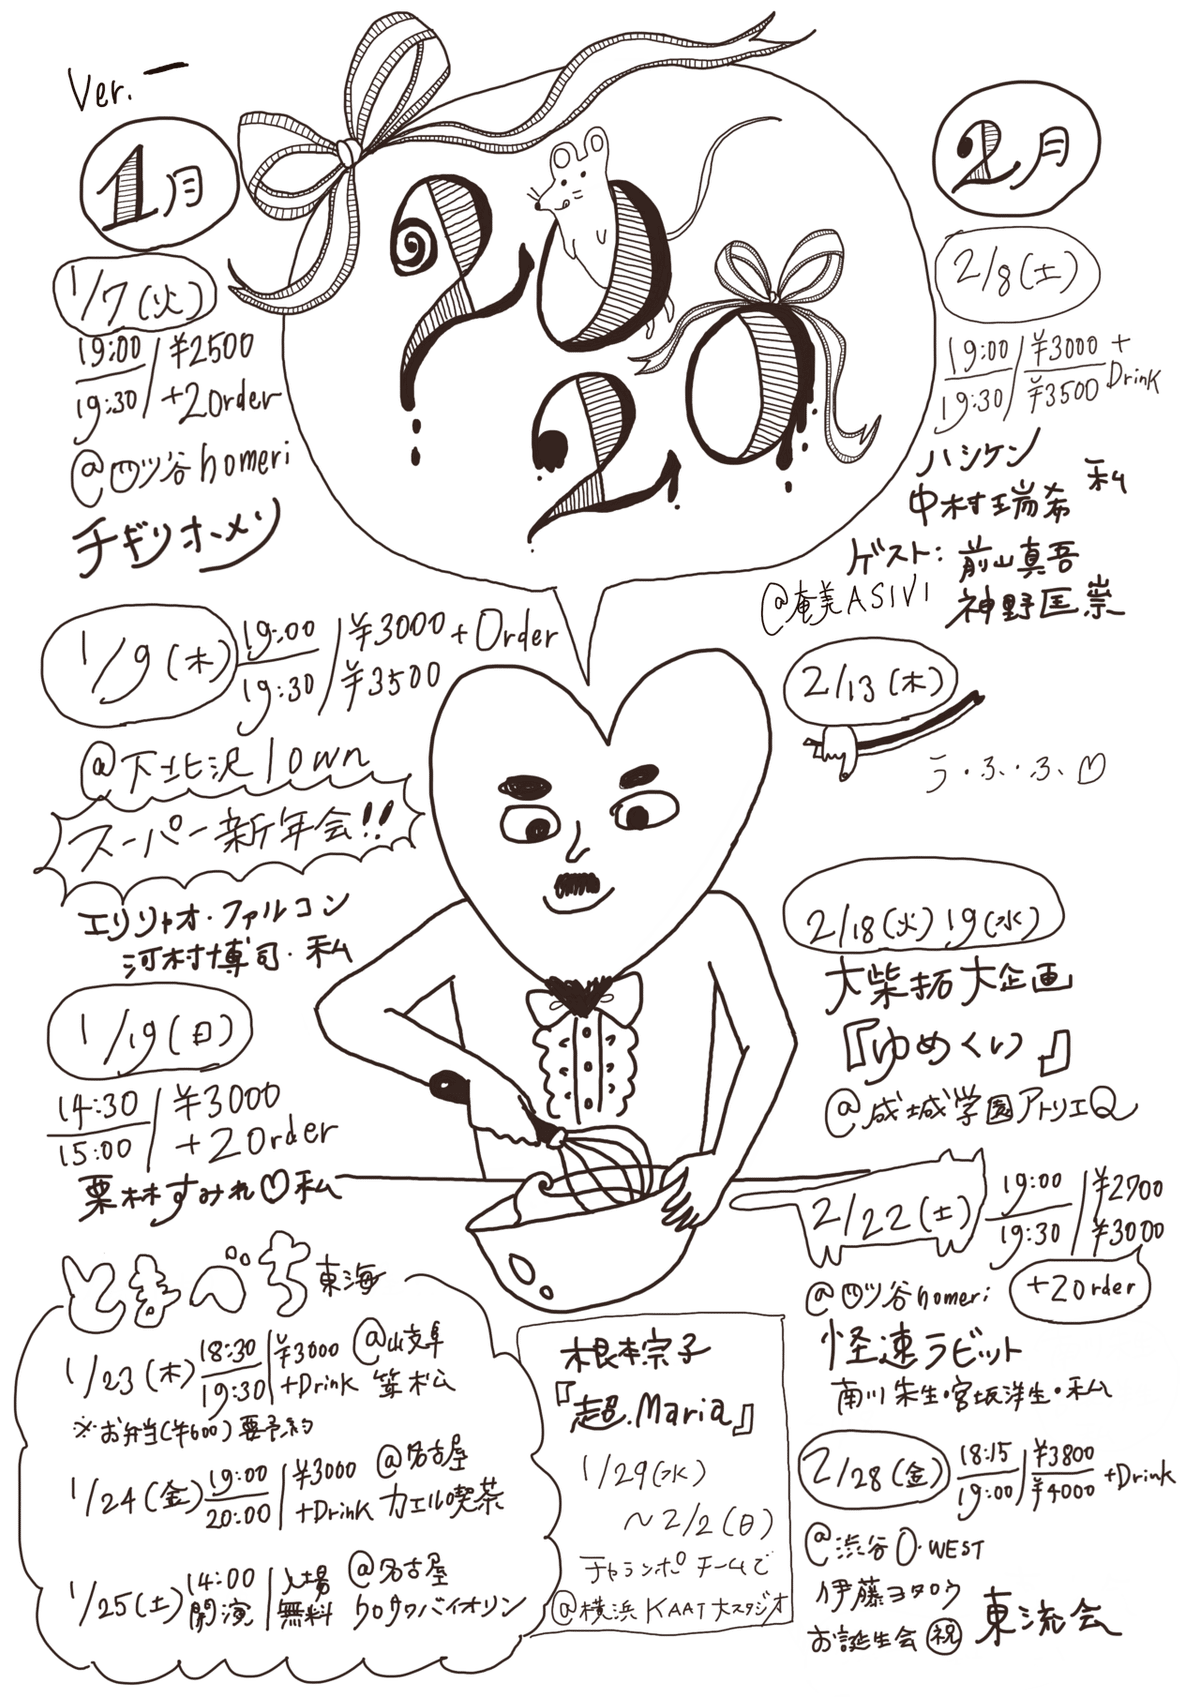 Ver.一
1月
1/7(火)
19:00 / ¥2500
19:30 / +2order
@四ツ谷homeri
チギリオ・メリ
1/9(木)
19:00 / ¥3000 + Order
19:30 / ¥3500
@下北沢 lown
スーパー新年会!!
エリツャオ・ファルコン
河村博司・私
1/19(日)
14:30 / ¥3000
15:00 / +2order
栗林すみれ♡私
とまべち東海
1/23(木) 18:30 / ¥3000 @岐阜
19:30 / +Drink 笠松
※お弁当(¥600)要予約
1/24(金) 19:00 / ¥3000 @名古屋
20:00 / +Drink カエル喫茶
1/25(土) 14:00 / 入場 @名古屋
開演 / 無料 クロサワバイオリン
2020
根本宗子
『超、Maria』
1/29(水)
〜2/2(日)
チャランポチームで
@横浜KAAT大スタジオ
2月
2/8(土)
19:00 / ¥3000 +
19:30 / ¥3500 Drink
ハシケン
中村瑞希 私
ゲスト: 前山真吾
神野匡崇
@奄美ASIVI
2/13(木)
う・ふ・ふ・♡
2/18(火)19(水)
大柴拓大企画
『ゆめくい』
@成城学園アトリエQ
2/22(土) 19:00 / ¥2700
19:30 / ¥3000
@四ツ谷homeri +2order
怪速ラビット
南川朱生・宮坂洋生・私
2/28(金) 18:15 / ¥3800
19:00 / ¥4000 +Drink
@渋谷O-WEST
伊藤ヨタロウ
お誕生会 祝 東流会